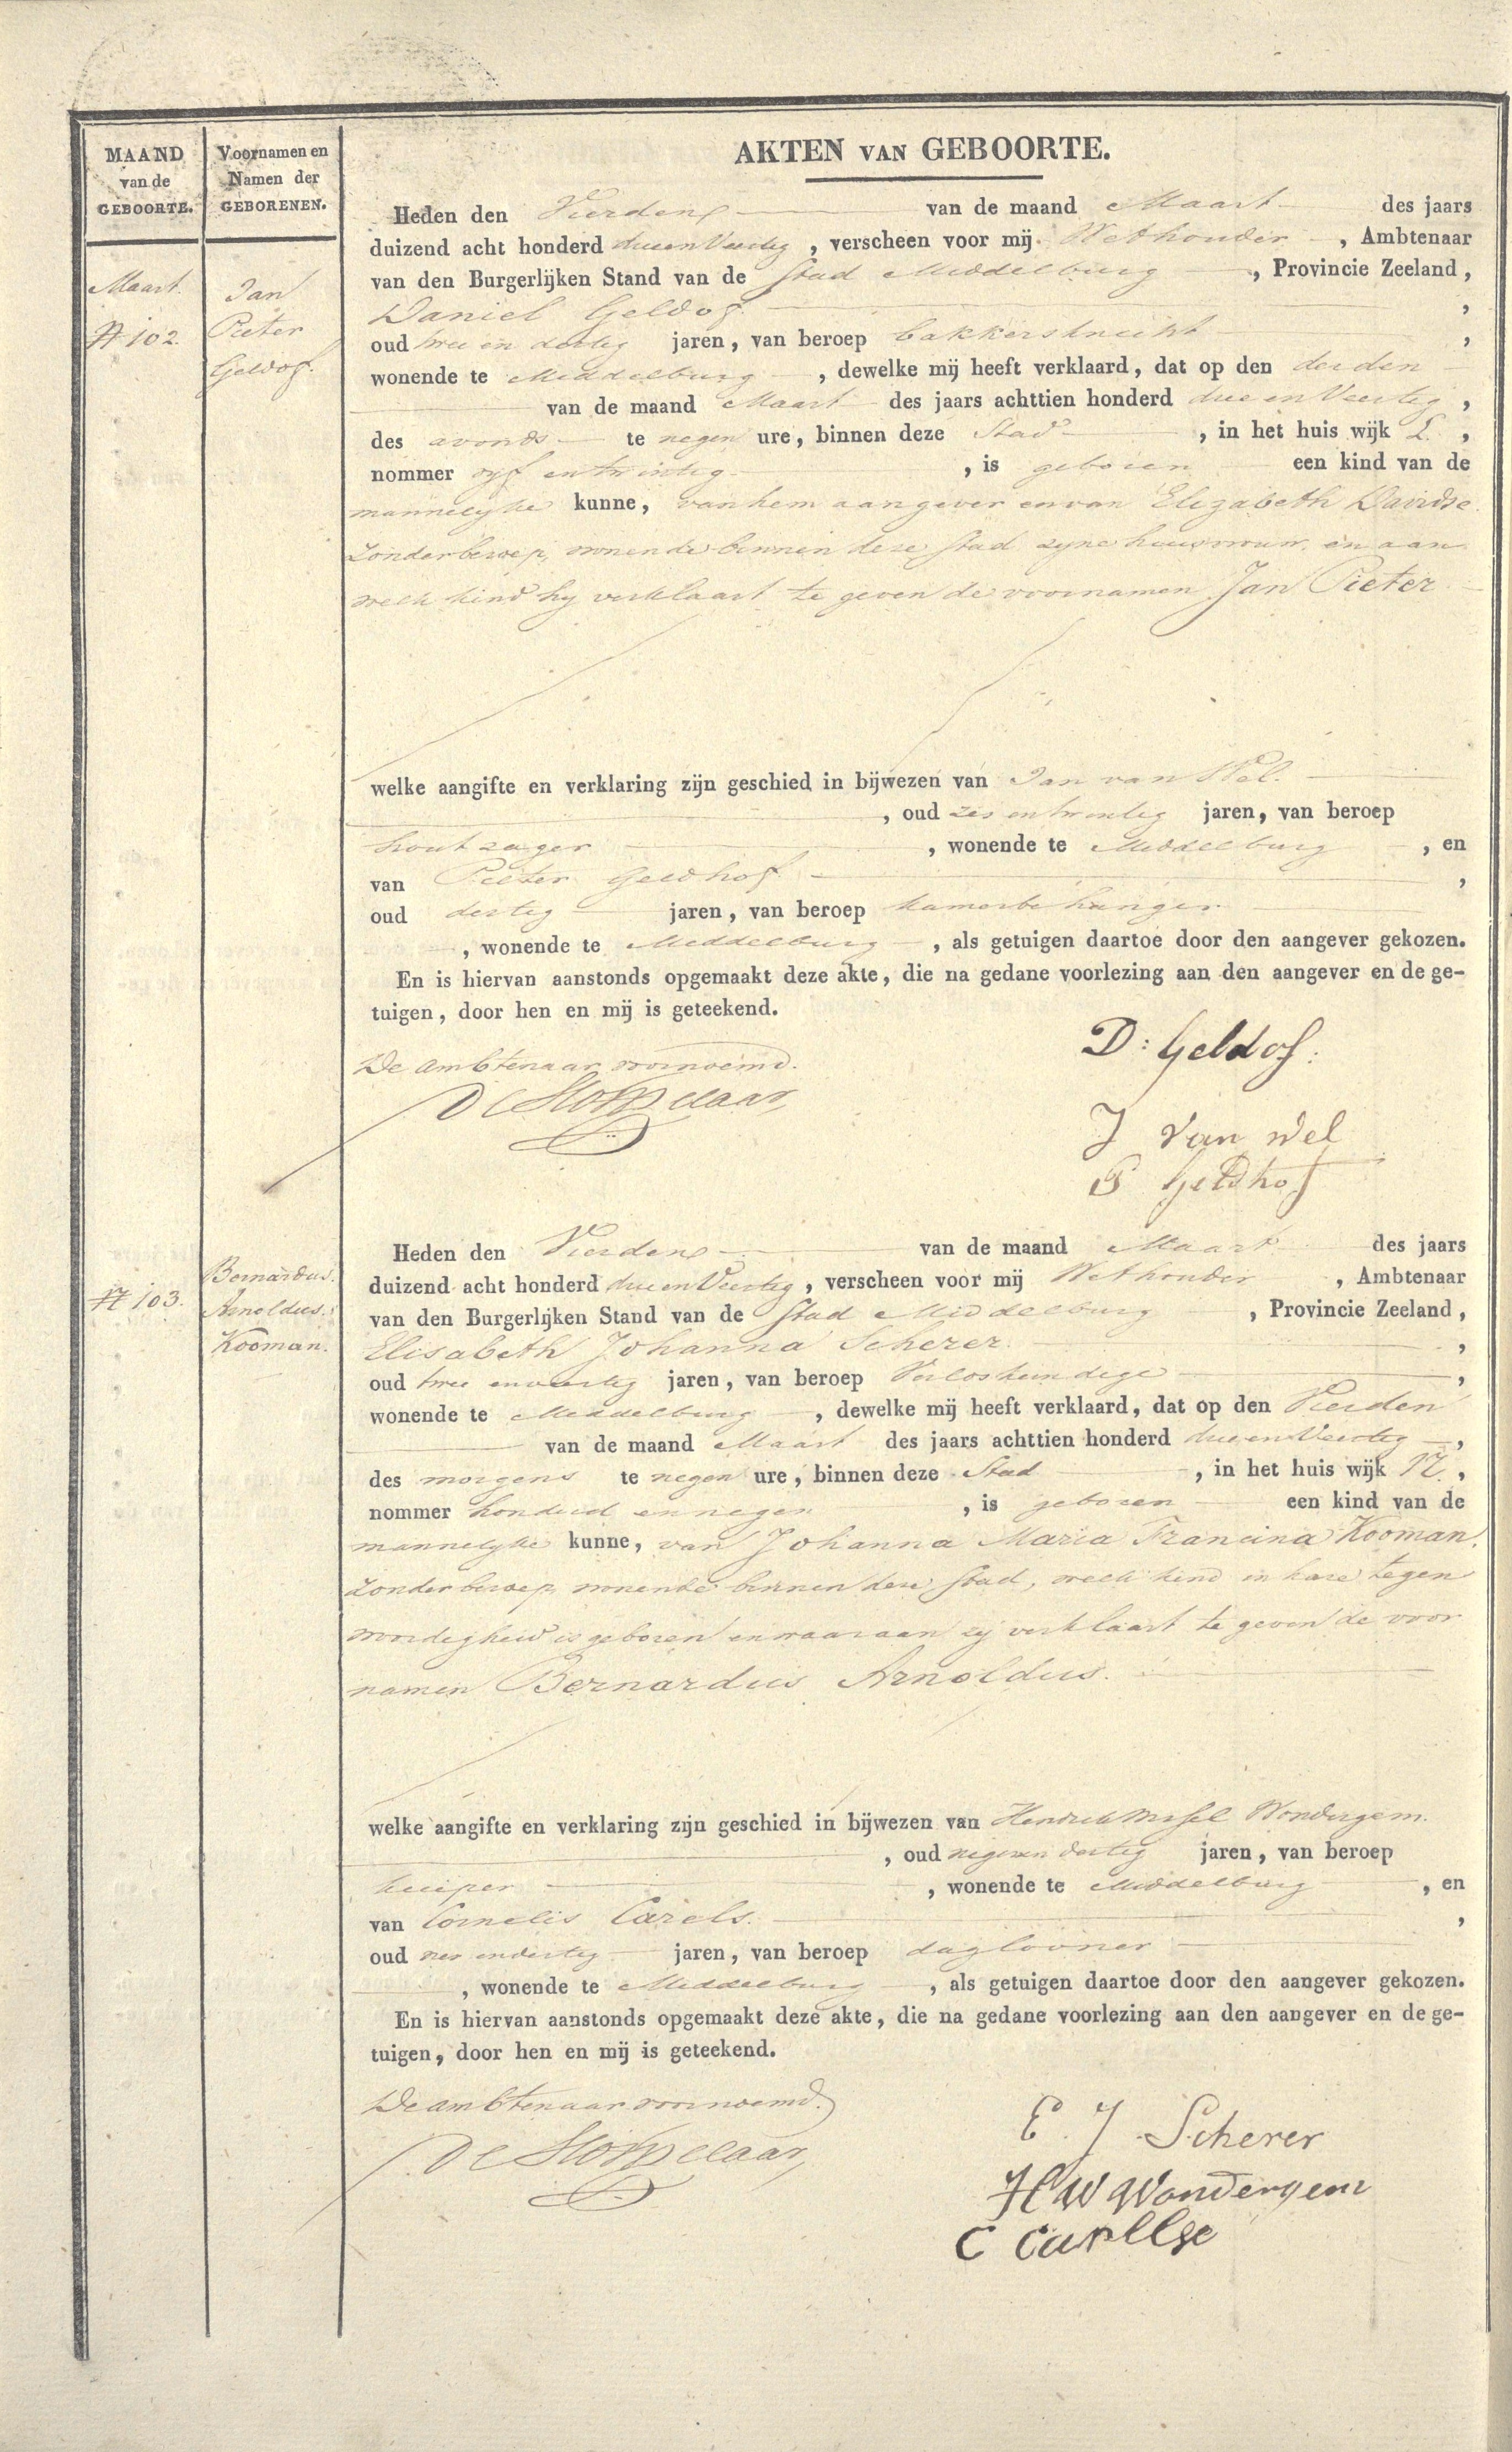 MAAND
van de
GEBOORTE.
Voornamen en
Namen der
GEBORENEN.
AKTEN VAN GEBOORTE.
Maart.
N 102.
Jan
Pieter
Geldof.
Heden den Vierden van de maand Maart des jaars
duizend acht honderd drie en Veertig, verscheen voor mij Wethouder, Ambtenaar
van den Burgerlijken Stand van de Stad Middelburg, Provincie Zeeland,
Daniel Geldof,
oud twee en dertig jaren, van beroep bakkersknecht,
wonende te Middelburg, dewelke mij heeft verklaard, dat op den derden
van de maand Maart des jaars achttien honderd drie en Veertig,
des avonds te negen ure, binnen deze Stad, in het huis wijk L.,
nommer vyf en twintig, is geboren een kind van de
mannelyke kunne, van hem aangever en van Elizabeth Davidse
zonder beroep, wonende binnen deze stad zyne huisvrouw, en aan
welk kind hy verklaart te geven de voornamen Jan Pieter.
welke aangifte en verklaring zijn geschied in bijwezen van Jan van Wel.
, oud zes en twintig jaren, van beroep
houtzager, wonende te Middelburg, en
van Pieter Geldhof,
oud dertig jaren, van beroep kamerbehanger
, wonende te Middelburg, als getuigen daartoe door den aangever gekozen.
En is hiervan aanstonds opgemaakt deze akte, die na gedane voorlezing aan den aangever en de ge-
tuigen, door hen en mij is geteekend.
De ambtenaar voornoemd.
De Stoppelaar
D: Geldof:
J van Wel
P Geldhof
N 103.
Bernardus
Arnoldus
Kooman.
Heden den Vierden van de maand Maart des jaars
duizend acht honderd drie en Veertig, verscheen voor mij Wethouder, Ambtenaar
van den Burgerlijken Stand van de Stad Middelburg, Provincie Zeeland,
Elisabeth Johanna Scherer.,
oud twee en veertig jaren, van beroep Verloskundige,
wonende te Middelburg, dewelke mij heeft verklaard, dat op den Vierden
van de maand Maart des jaars achttien honderd drie en Veertig,
des morgens te negen ure, binnen deze Stad, in het huis wijk,
nommer honderd en negen, is geboren een kind van de
mannelyke kunne, van Johanna Maria Francina Kooman.
zonder beroep, wonende binnen deze stad, welk kind in hare tegen
woordigheid is geboren en waaraan zy verklaart te geven de voor
namen Bernardus Arnoldus.
welke aangifte en verklaring zijn geschied in bijwezen van Hendrik Wondergem.
, oud negen en dertig jaren, van beroep
kuiper, wonende te Middelburg, en
van Cornelis Carels.,
oud en dertig jaren, van beroep daglooner
, wonende te Middelburg, als getuigen daartoe door den aangever gekozen.
En is hiervan aanstonds opgemaakt deze akte, die na gedane voorlezing aan den aangever en de ge-
tuigen, door hen en mij is geteekend.
De ambtenaar voornoemd.
De Stoppelaar
E. J Scherer
H W Wondergem
C Carellse